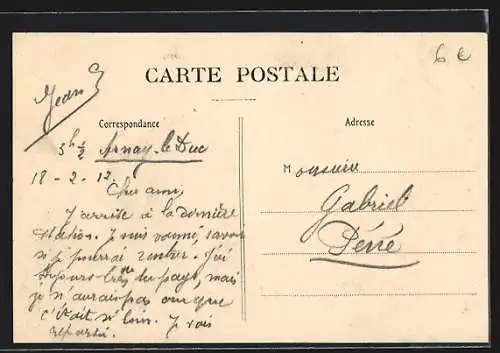 6 €
Jean
CARTE POSTALE
Correspondance
Adresse
3h ½ Arnay-le-Duc
18-2-12.
Cher ami,
J'arrive à la dernière
station. Je suis vanné, savoir
si je pourrai rentrer. J'ai
vu pays, mais
je n'aurais pas cru que
c'était si loin. Je vais
repartir.
Monsieur
Gabriel
Perré